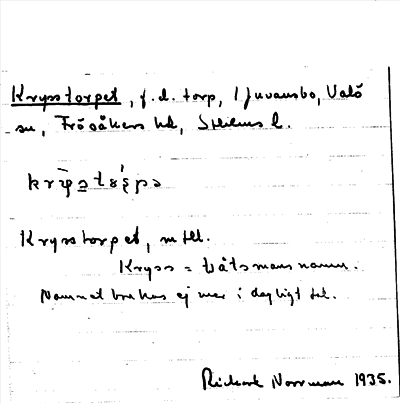 Krysstorpet, f.d. torp, Ljuvansbo, Valö
sn, Frösåkers hd, Sthlms l.
Krysstorpet, n sbl.
Kryss = båtsmansnamn.
Namnet brukas ej mer i dagligt tal.
Rickard Norrman 1935.